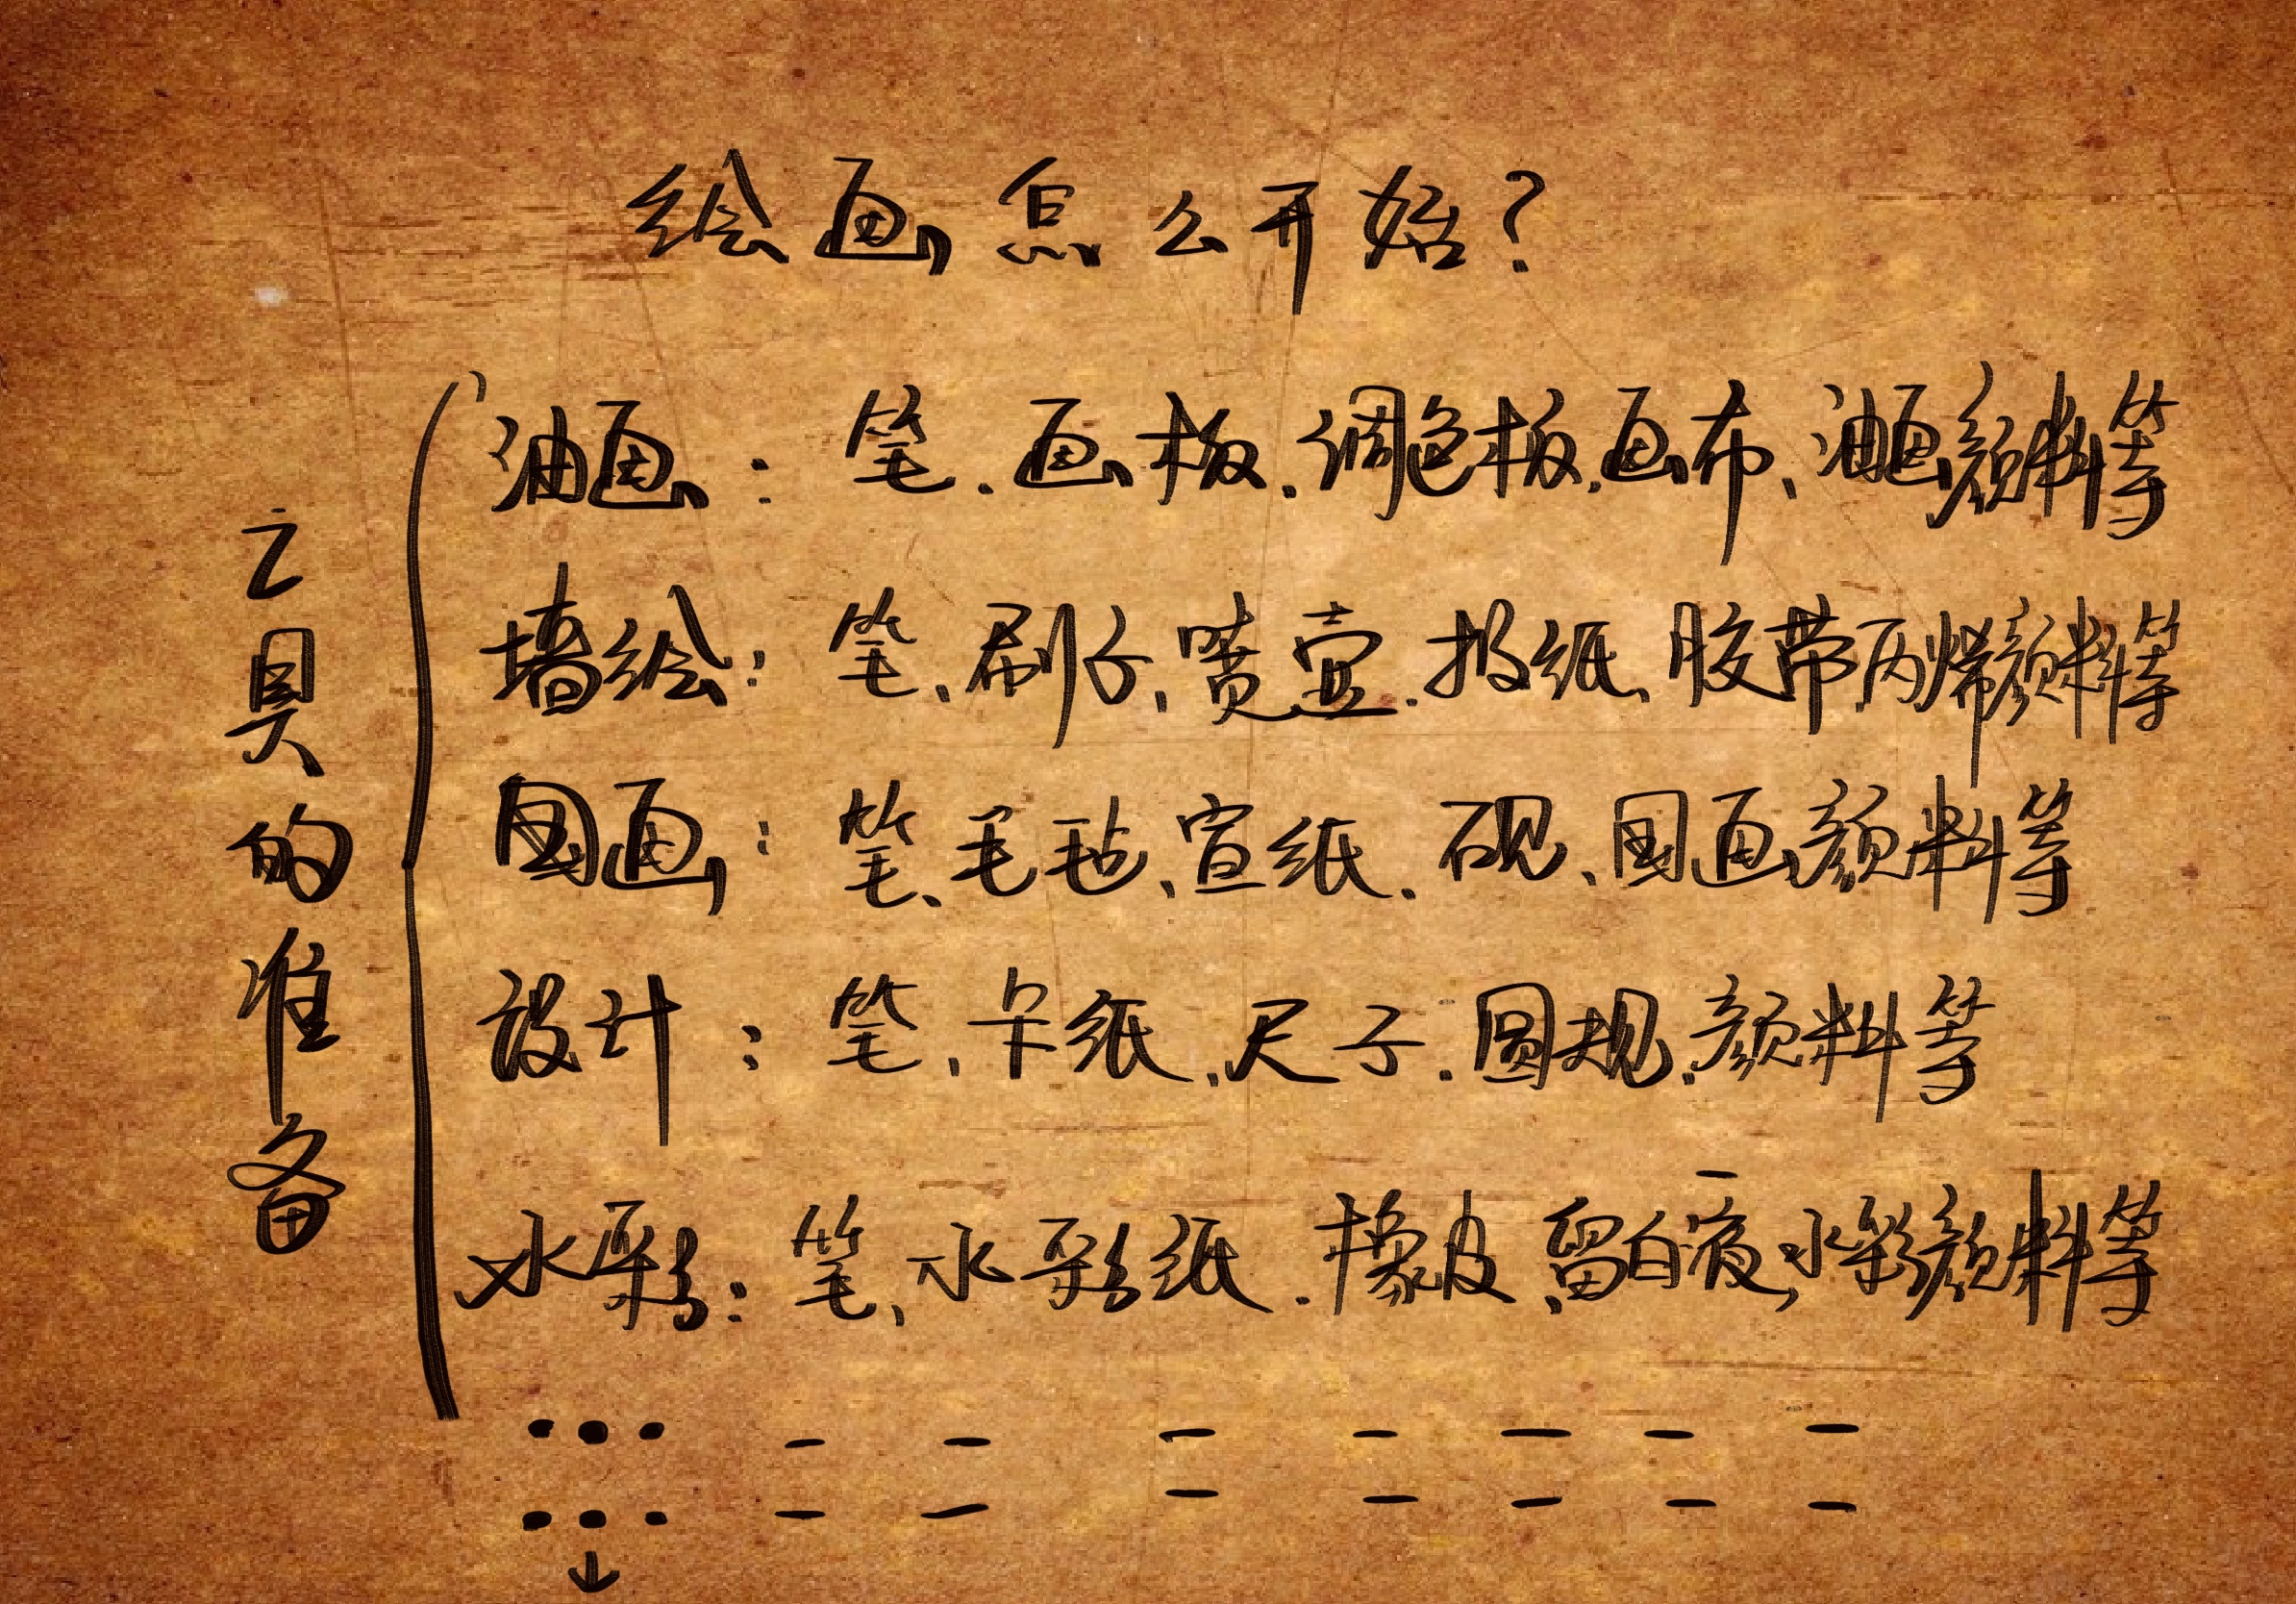 绘画怎么开始?
工具的准备
油画:笔、画板、调色板、画布、油画颜料等
墙绘:笔、刷子、喷壶、报纸、胶带、丙烯颜料等
国画:笔、毛毡、宣纸、砚、国画颜料等
设计:笔、卡纸、尺子、圆规、颜料等
水彩:笔、水彩纸、橡皮、留白液、水彩颜料等